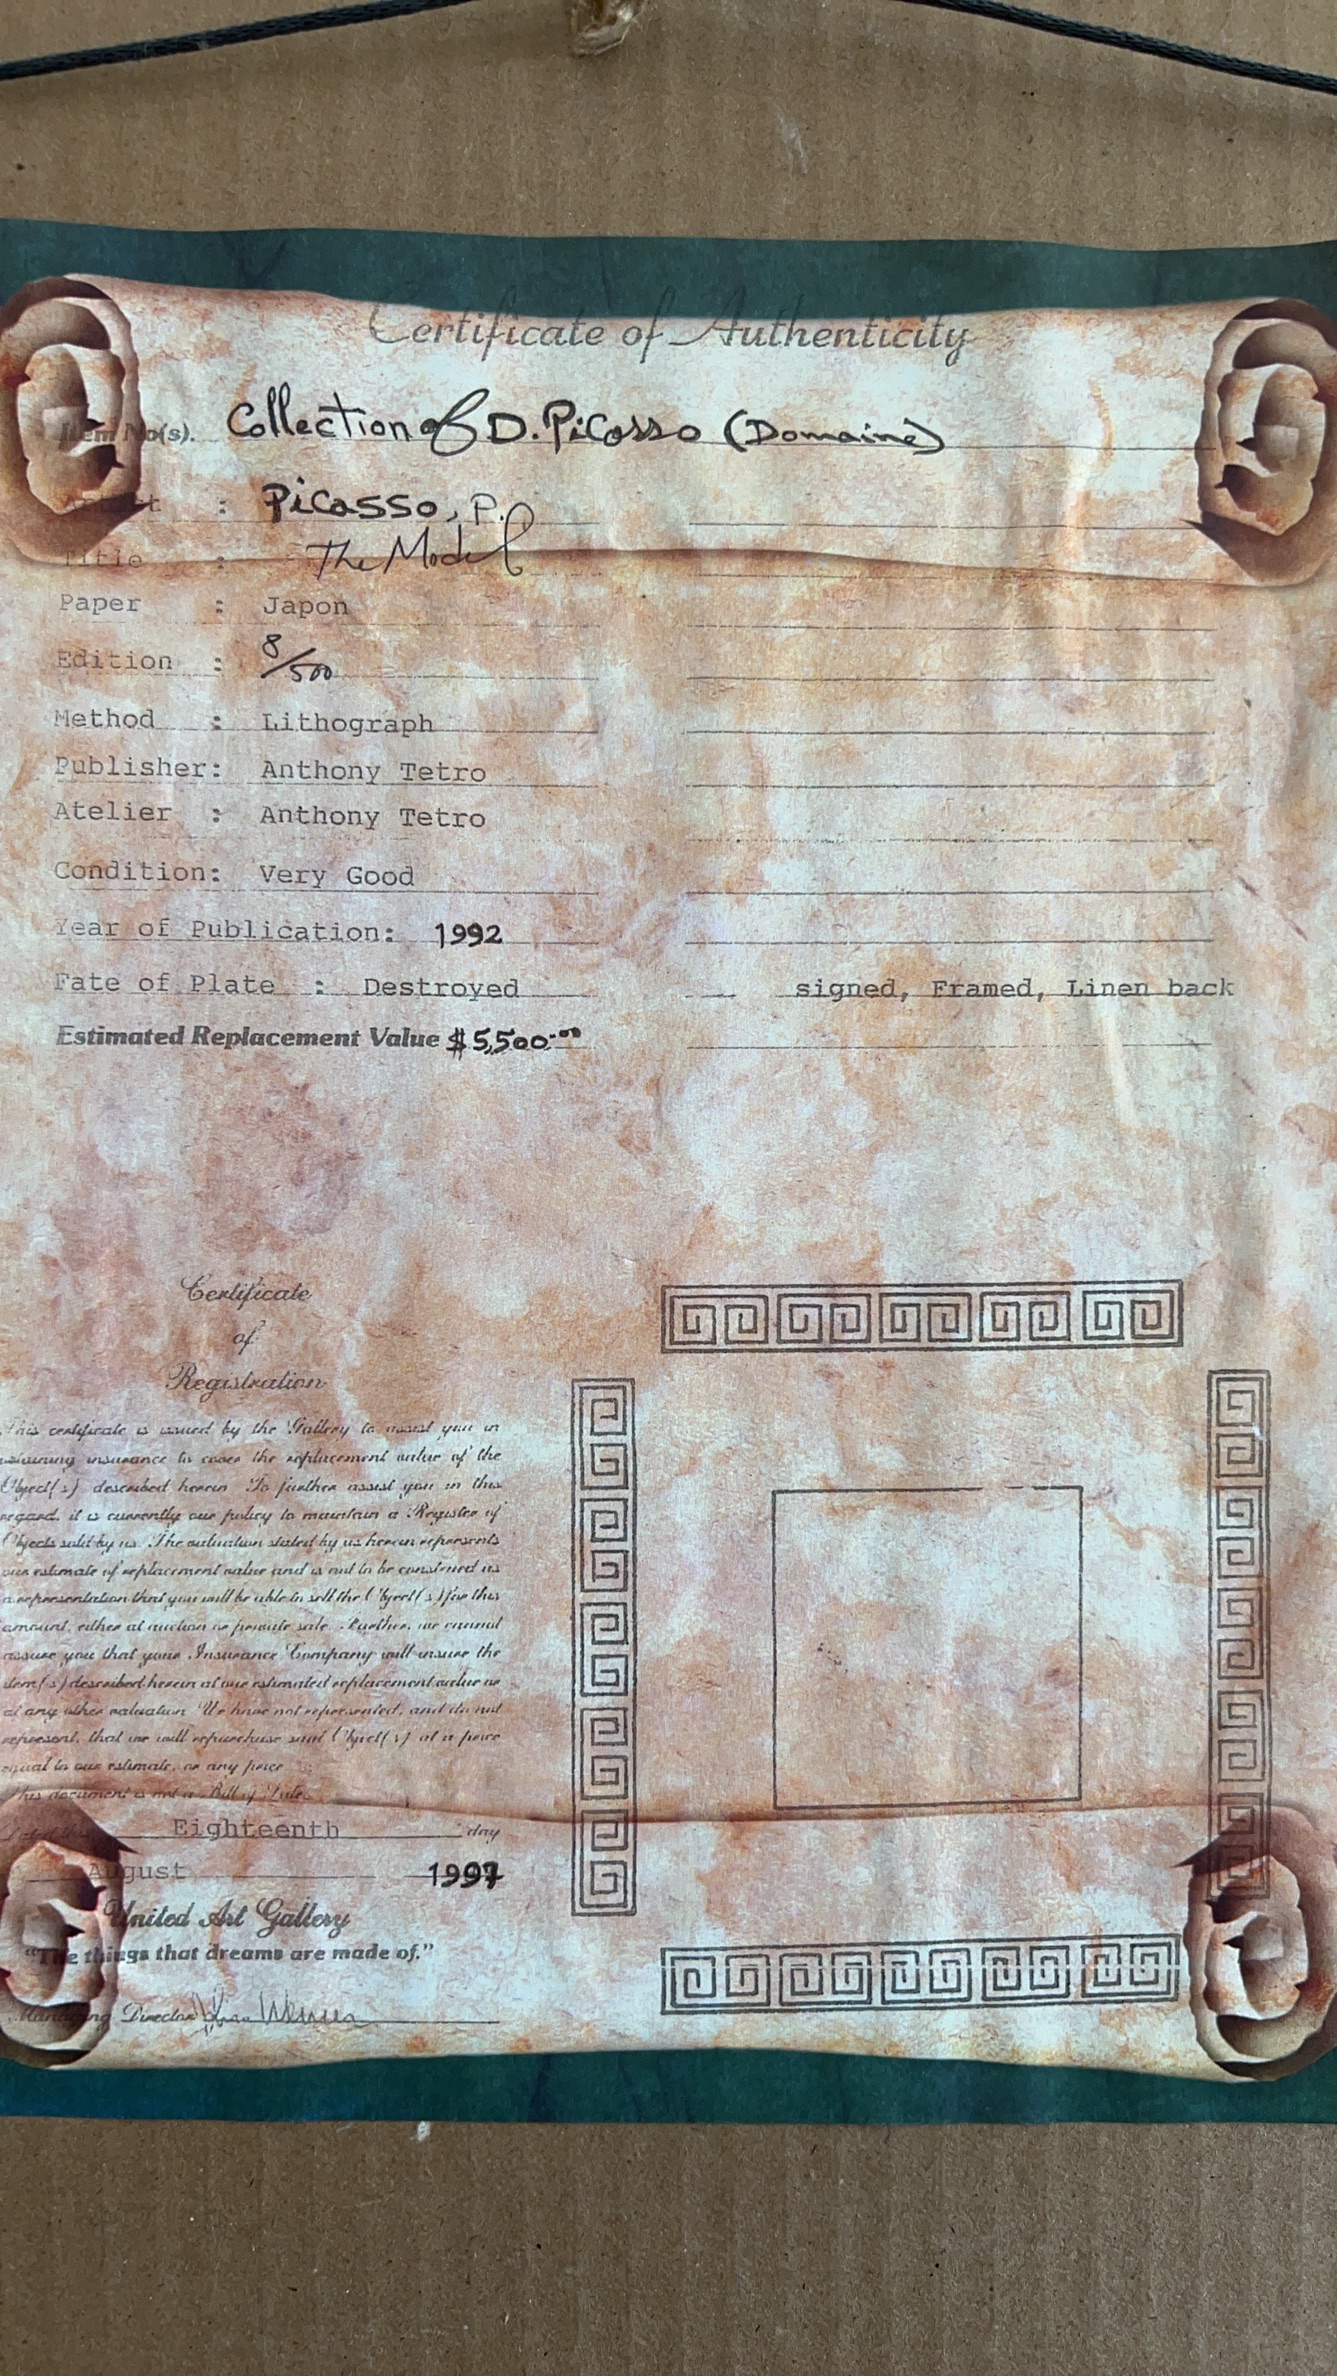 Certificate of Authenticity
Item No(s). Collection of D. Picasso (Domaine)
Artist : Picasso, P.
Title : The Model
Paper : Japon
Edition : 8/500
Method : Lithograph
Publisher: Anthony Tetro
Atelier : Anthony Tetro
Condition: Very Good
Year of Publication: 1992
Fate of Plate : Destroyed signed, Framed, Linen back
Estimated Replacement Value $5,500.00
Certificate
of
Registration
This certificate is issued by the Gallery to assist you in
obtaining insurance to cover the replacement value of the
Object(s) described herein. To further assist you in this
regard, it is currently our policy to maintain a Register of
Objects sold by us. The valuation stated by us herein represents
our estimate of replacement value and is not to be construed as
a representation that you will be able to sell the Object(s) for this
amount, either at auction or private sale. Further, we cannot
assure you that your Insurance Company will insure the
item(s) described herein at our estimated replacement value or
at any other valuation. We have not represented, and do not
represent, that we will repurchase said Object(s) at a price
equal to our estimate, or any price.
This document is not a Bill of Sale.
Dated this Eighteenth day
August 1997
United Art Gallery
"The things that dreams are made of."
Managing Director